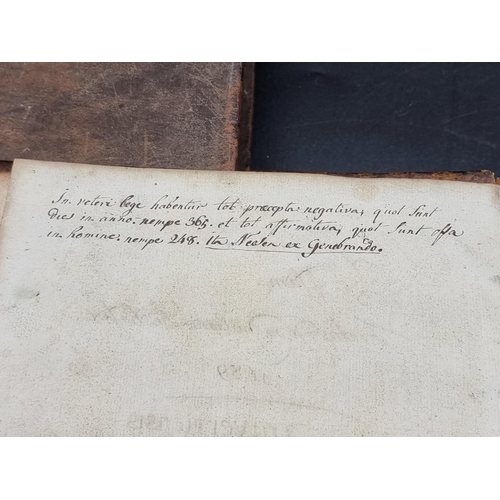 In veteri lege habentur tot præcepta negativa, quot sunt
dies in anno. nempe 365. et tot affirmativa, quot sunt ossa
in homine. nempe 248. Ita Neesen ex Genebrando.